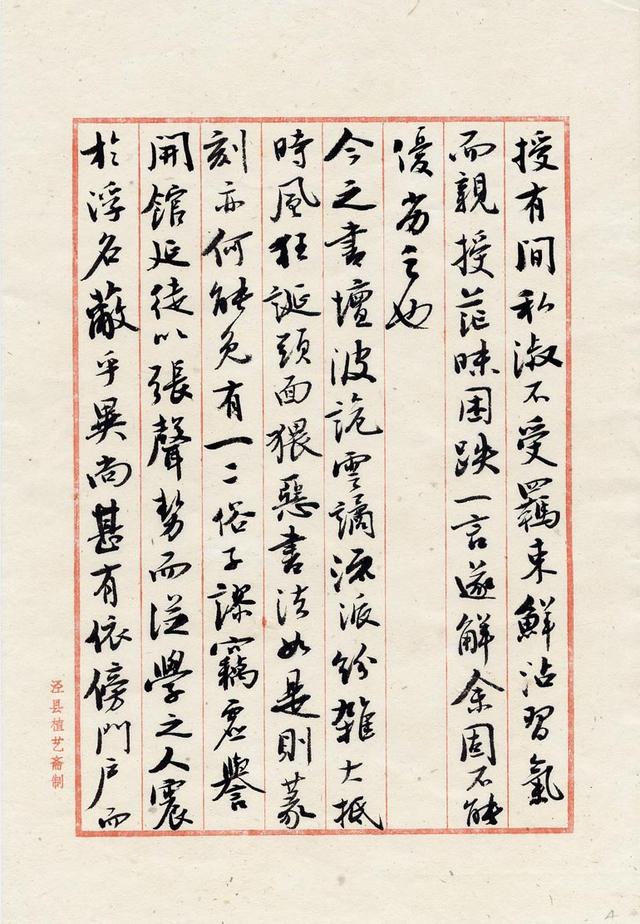 授有间私淑不受羁束鲜沾習氣
而親授茫昧困跌一言遂解余固不能
優劣之也
今之書壇波詭雲譎流派紛雜大抵
時風狂誕頭面猥惡書法如是則篆
刻亦何能免有一二俗子謬竊虛譽
開館延徒以張聲勢而從學之人震
於浮名蔽乎異尚甚有依傍門户而
泾县植艺斋制